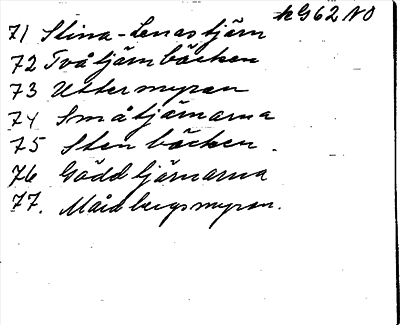 kG62 NO
71 Stina-Lenas tjärn
72 Två tjärnbäcken
73 Uttermyran
74 Småtjärnarna
75 Stenbäcken.
76 Gäddtjärnarna
77. Mårdbergsmyran.